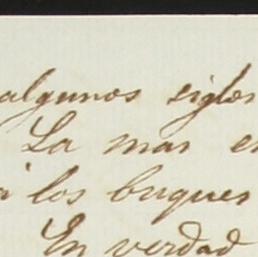 algunos siglos
La mar en
los buques
En verdad